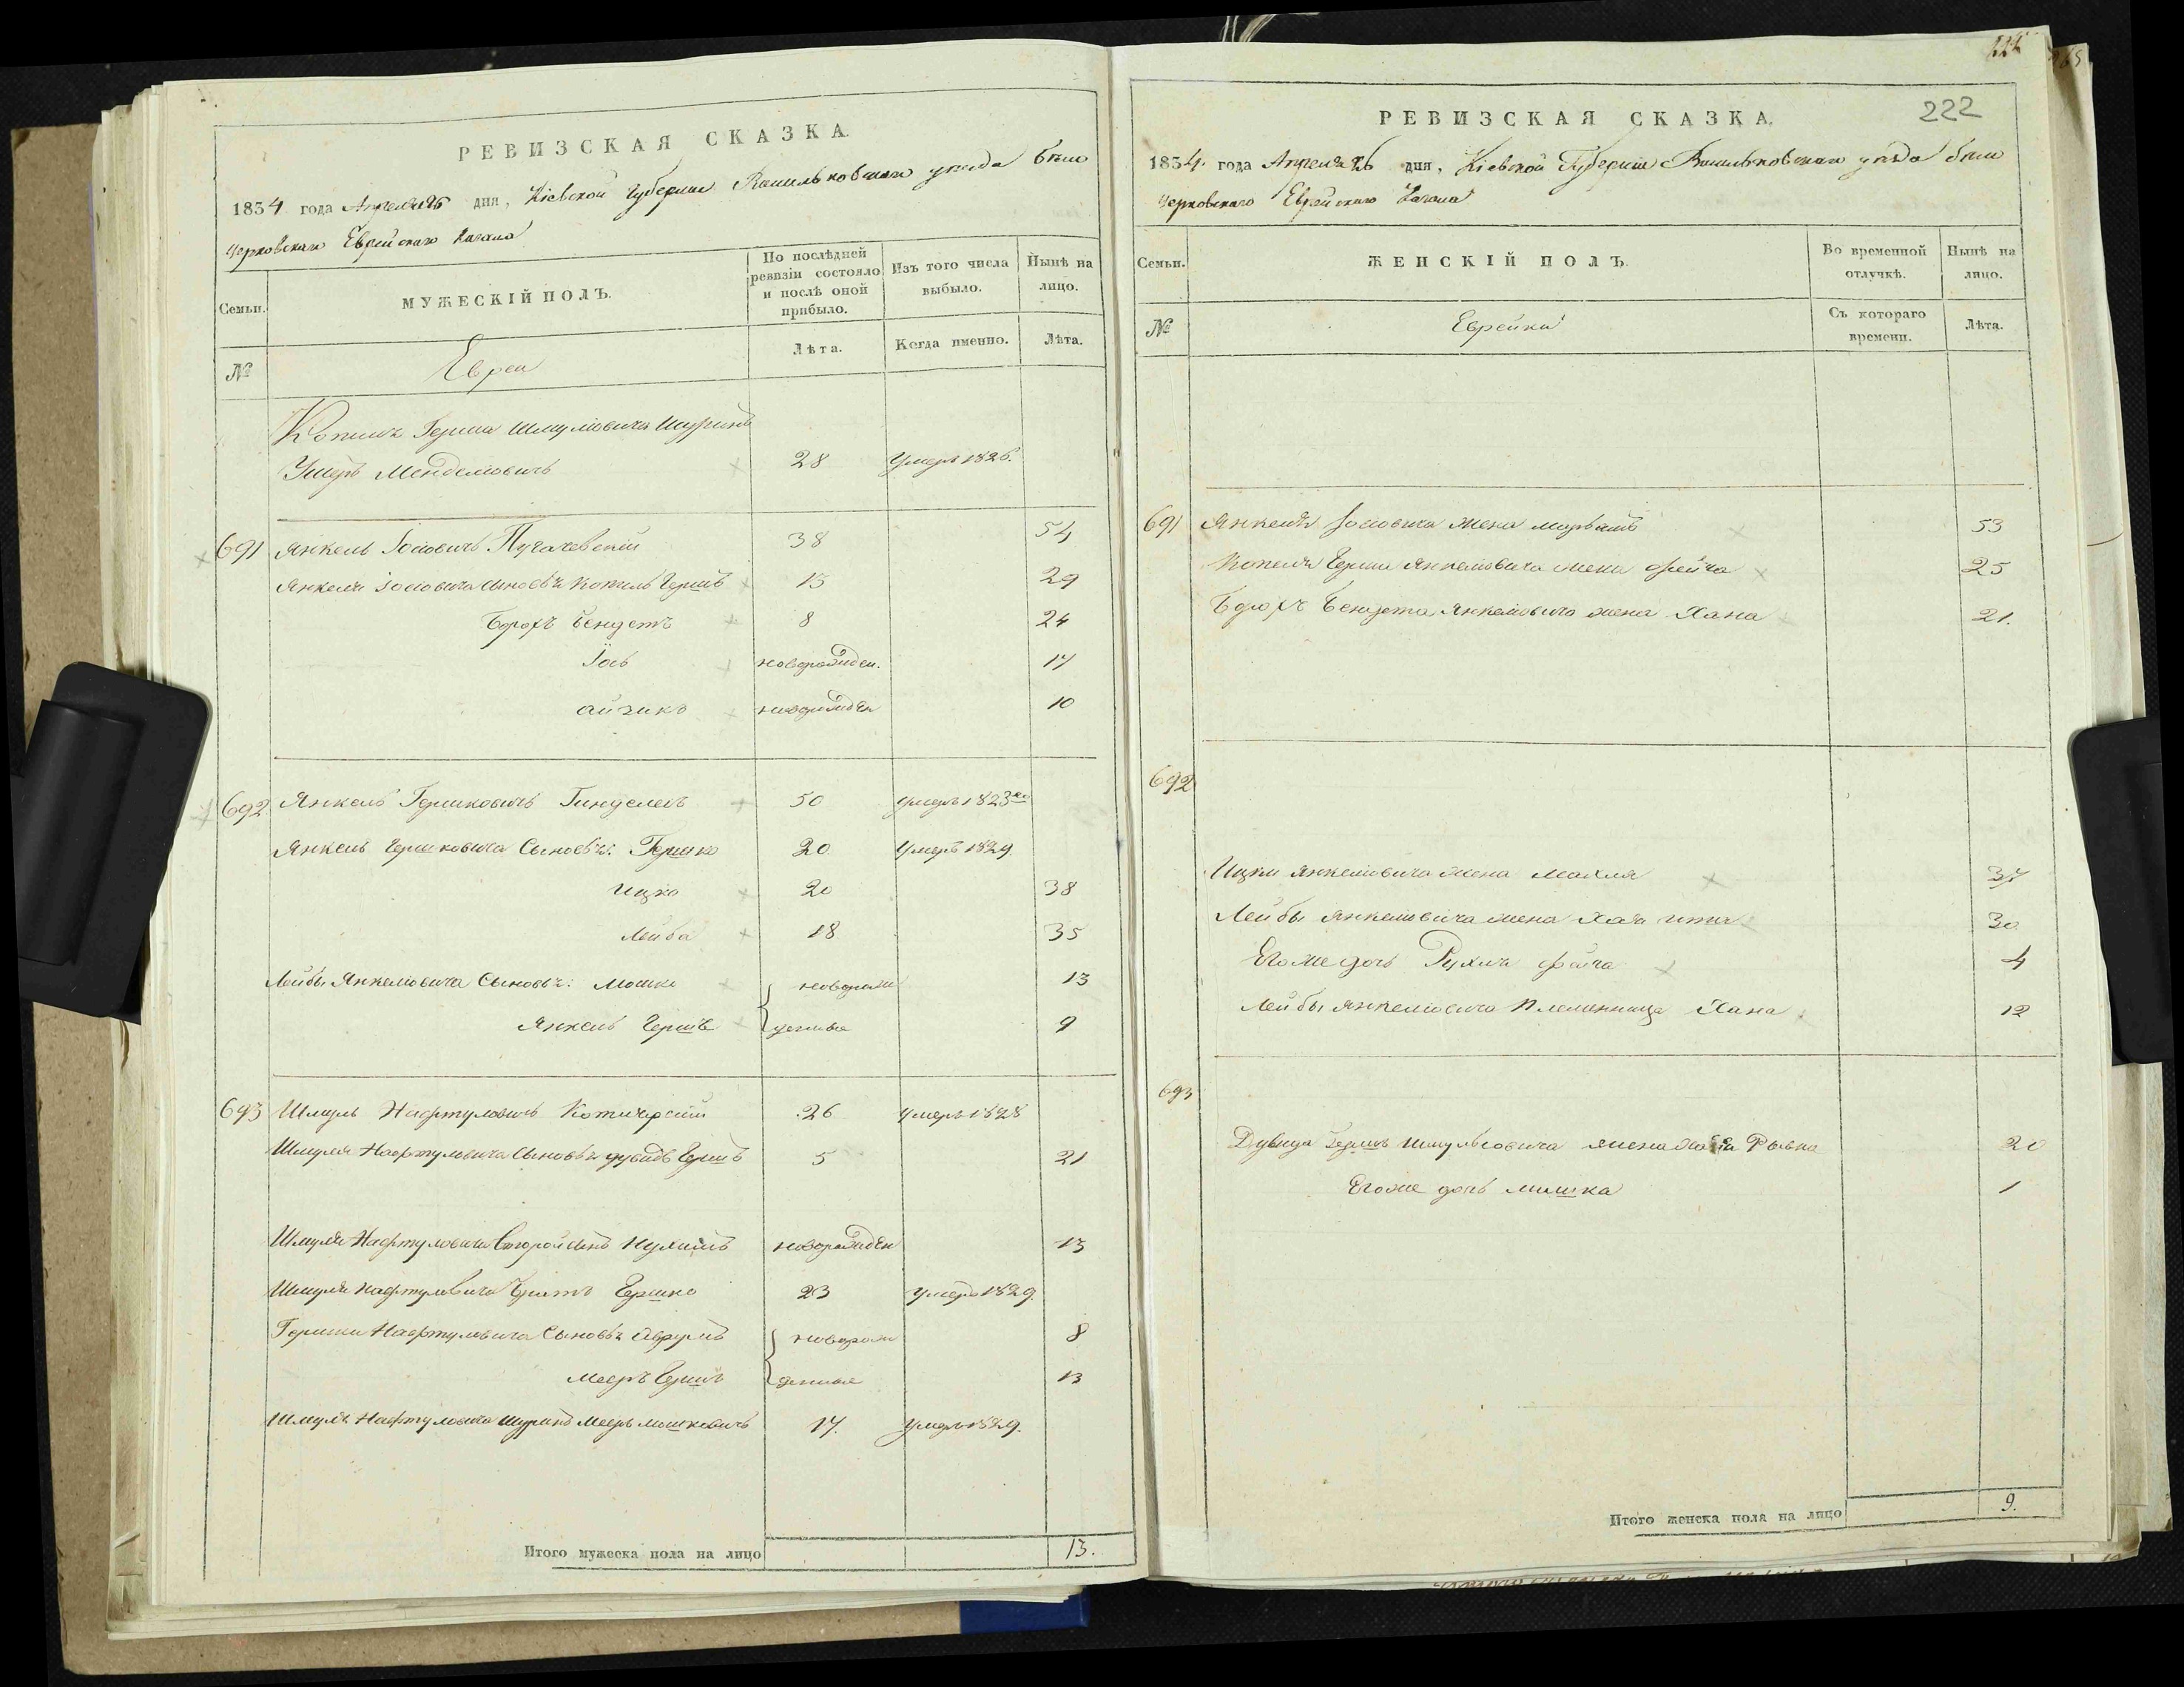 РЕВИЗСКАЯ СКАЗКА.
1834 года Апреля 26 дня, Кіевской Губерніи Васильковскаго уезда Бѣло
церковскаго Еврейскаго Кагала
Семьи.
МУЖЕСКІЙ ПОЛЪ.
По послѣдней ревизіи состояло и послѣ оной прибыло.
Изъ того числа выбыло.
Нынѣ на лицо.
№
Евреи
Лѣта.
Когда именно.
Лѣта.
Копыля Герша Шмулiовича Шуринъ
Ушеръ Менделiовичъ 28 Умеръ 1826.
691 Янкель Іосiовичъ Пугачевскiй 38 54
Янкеля Іосiовича сыновья Копель Гершъ 13 29
Борохъ Бенцетъ 8 24
Іось новорожден. 17
Айзикъ новорожден 10
692 Янкель Гершковичъ 50 умеръ 1823го
Янкель Гершковича Сыновья: Гершко 20 Умеръ 1829.
Ицко 20 38
Лейба 18 35
Лейбы Янкелiовича Сыновья: Мошко новорож 13
Янкель Гершъ денные 9
693 Шмуль Нафтуловичъ 26 умеръ 1828
Шмуля Нафтуловича Сыновья Дувидъ Гершъ 5 21
Шмуля Нафтуловича Второй сынъ Нухимъ новорожден 13
Шмуля Нафтуловича Братъ Гершко 23 Умеръ 1829.
Гершки Нафтуловича Сыновья Афрумъ новорож 8
Мееръ Гершъ денные 13
Шмуля Нафтуловича шуринъ Мееръ Мошковичъ 17. Умеръ 1829.
Итого мужеска пола на лицо 13.
222
РЕВИЗСКАЯ СКАЗКА.
1834 года Апреля 26 дня, Кіевской Губерніи Васильковскаго уезда Бѣло
церковскаго Еврейскаго Кагала
Семьи.
ЖЕНСКІЙ ПОЛЪ.
Во временной отлучкѣ.
Нынѣ на лицо.
№
Еврейки
Съ котораго времени.
Лѣта.
691 Янкеля Іосiовича жена 53
Копеля Герша Янкелiовича жена Фейга 25
Борохъ Бенцета Янкелiовича жена Хана 21.
692
Ицки Янкелiовича жена Махля 37
Лейбы Янкелiовича жена Хая Ита 30
Его же дочь Рухля Фейга 4
Лейбы Янкелiовича племянница Хана 12
693
Дувида Гершъ Шмульiовича жена Рывка 20
Его же дочь 1
Итого женска пола на лицо 9.